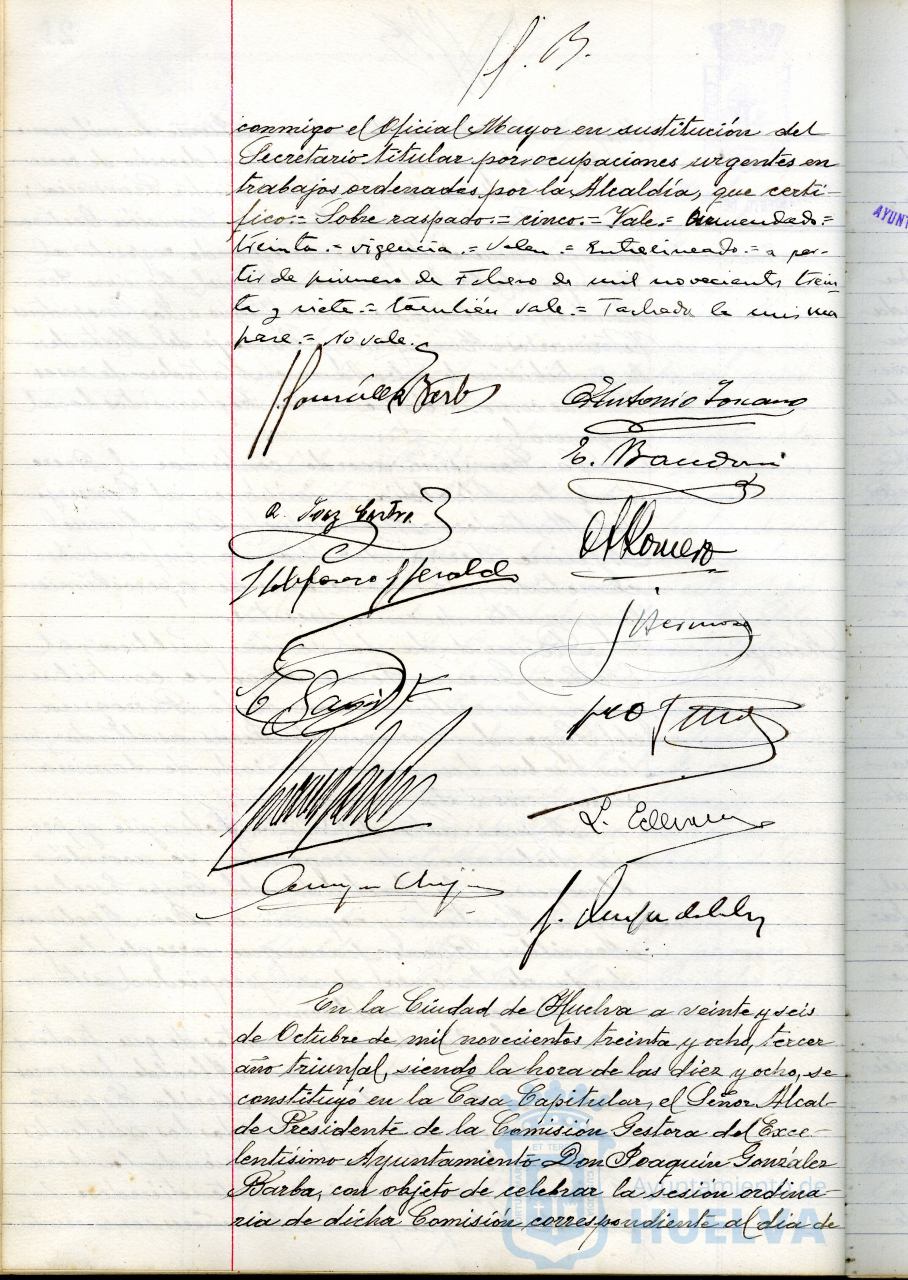 conmigo el Oficial Mayor en sustitución del
Secretario titular por ocupaciones urgentes en
trabajos ordenados por la Alcaldía, que certi-
fico.= Sobre raspado.= cinco.= Vale.= Enmendado.=
treinta.= vigencia.= Valen.= Entrelineado.= a par-
tir de primero de Febrero de mil novecientos trein-
ta y siete.= también vale.= Tachado la misma
pase.= No vale.
J González Barba
Antonio Toscano
E. Baudoni
Ildefonso
A Romero
J Hermoso
L.
J.
En la Ciudad de Huelva a veinte y seis
de Octubre de mil novecientos treinta y ocho, tercer
año triunfal, siendo la hora de las diez y ocho, se
constituyó en la Casa Capitular, el Señor Alcal-
de Presidente de la Comisión Gestora del Exce-
lentísimo Ayuntamiento Don Joaquín González
Barba, con objeto de celebrar la sesión ordina-
ria de dicha Comisión correspondiente al dia de
Ayuntamiento de
HUELVA
AYUNT